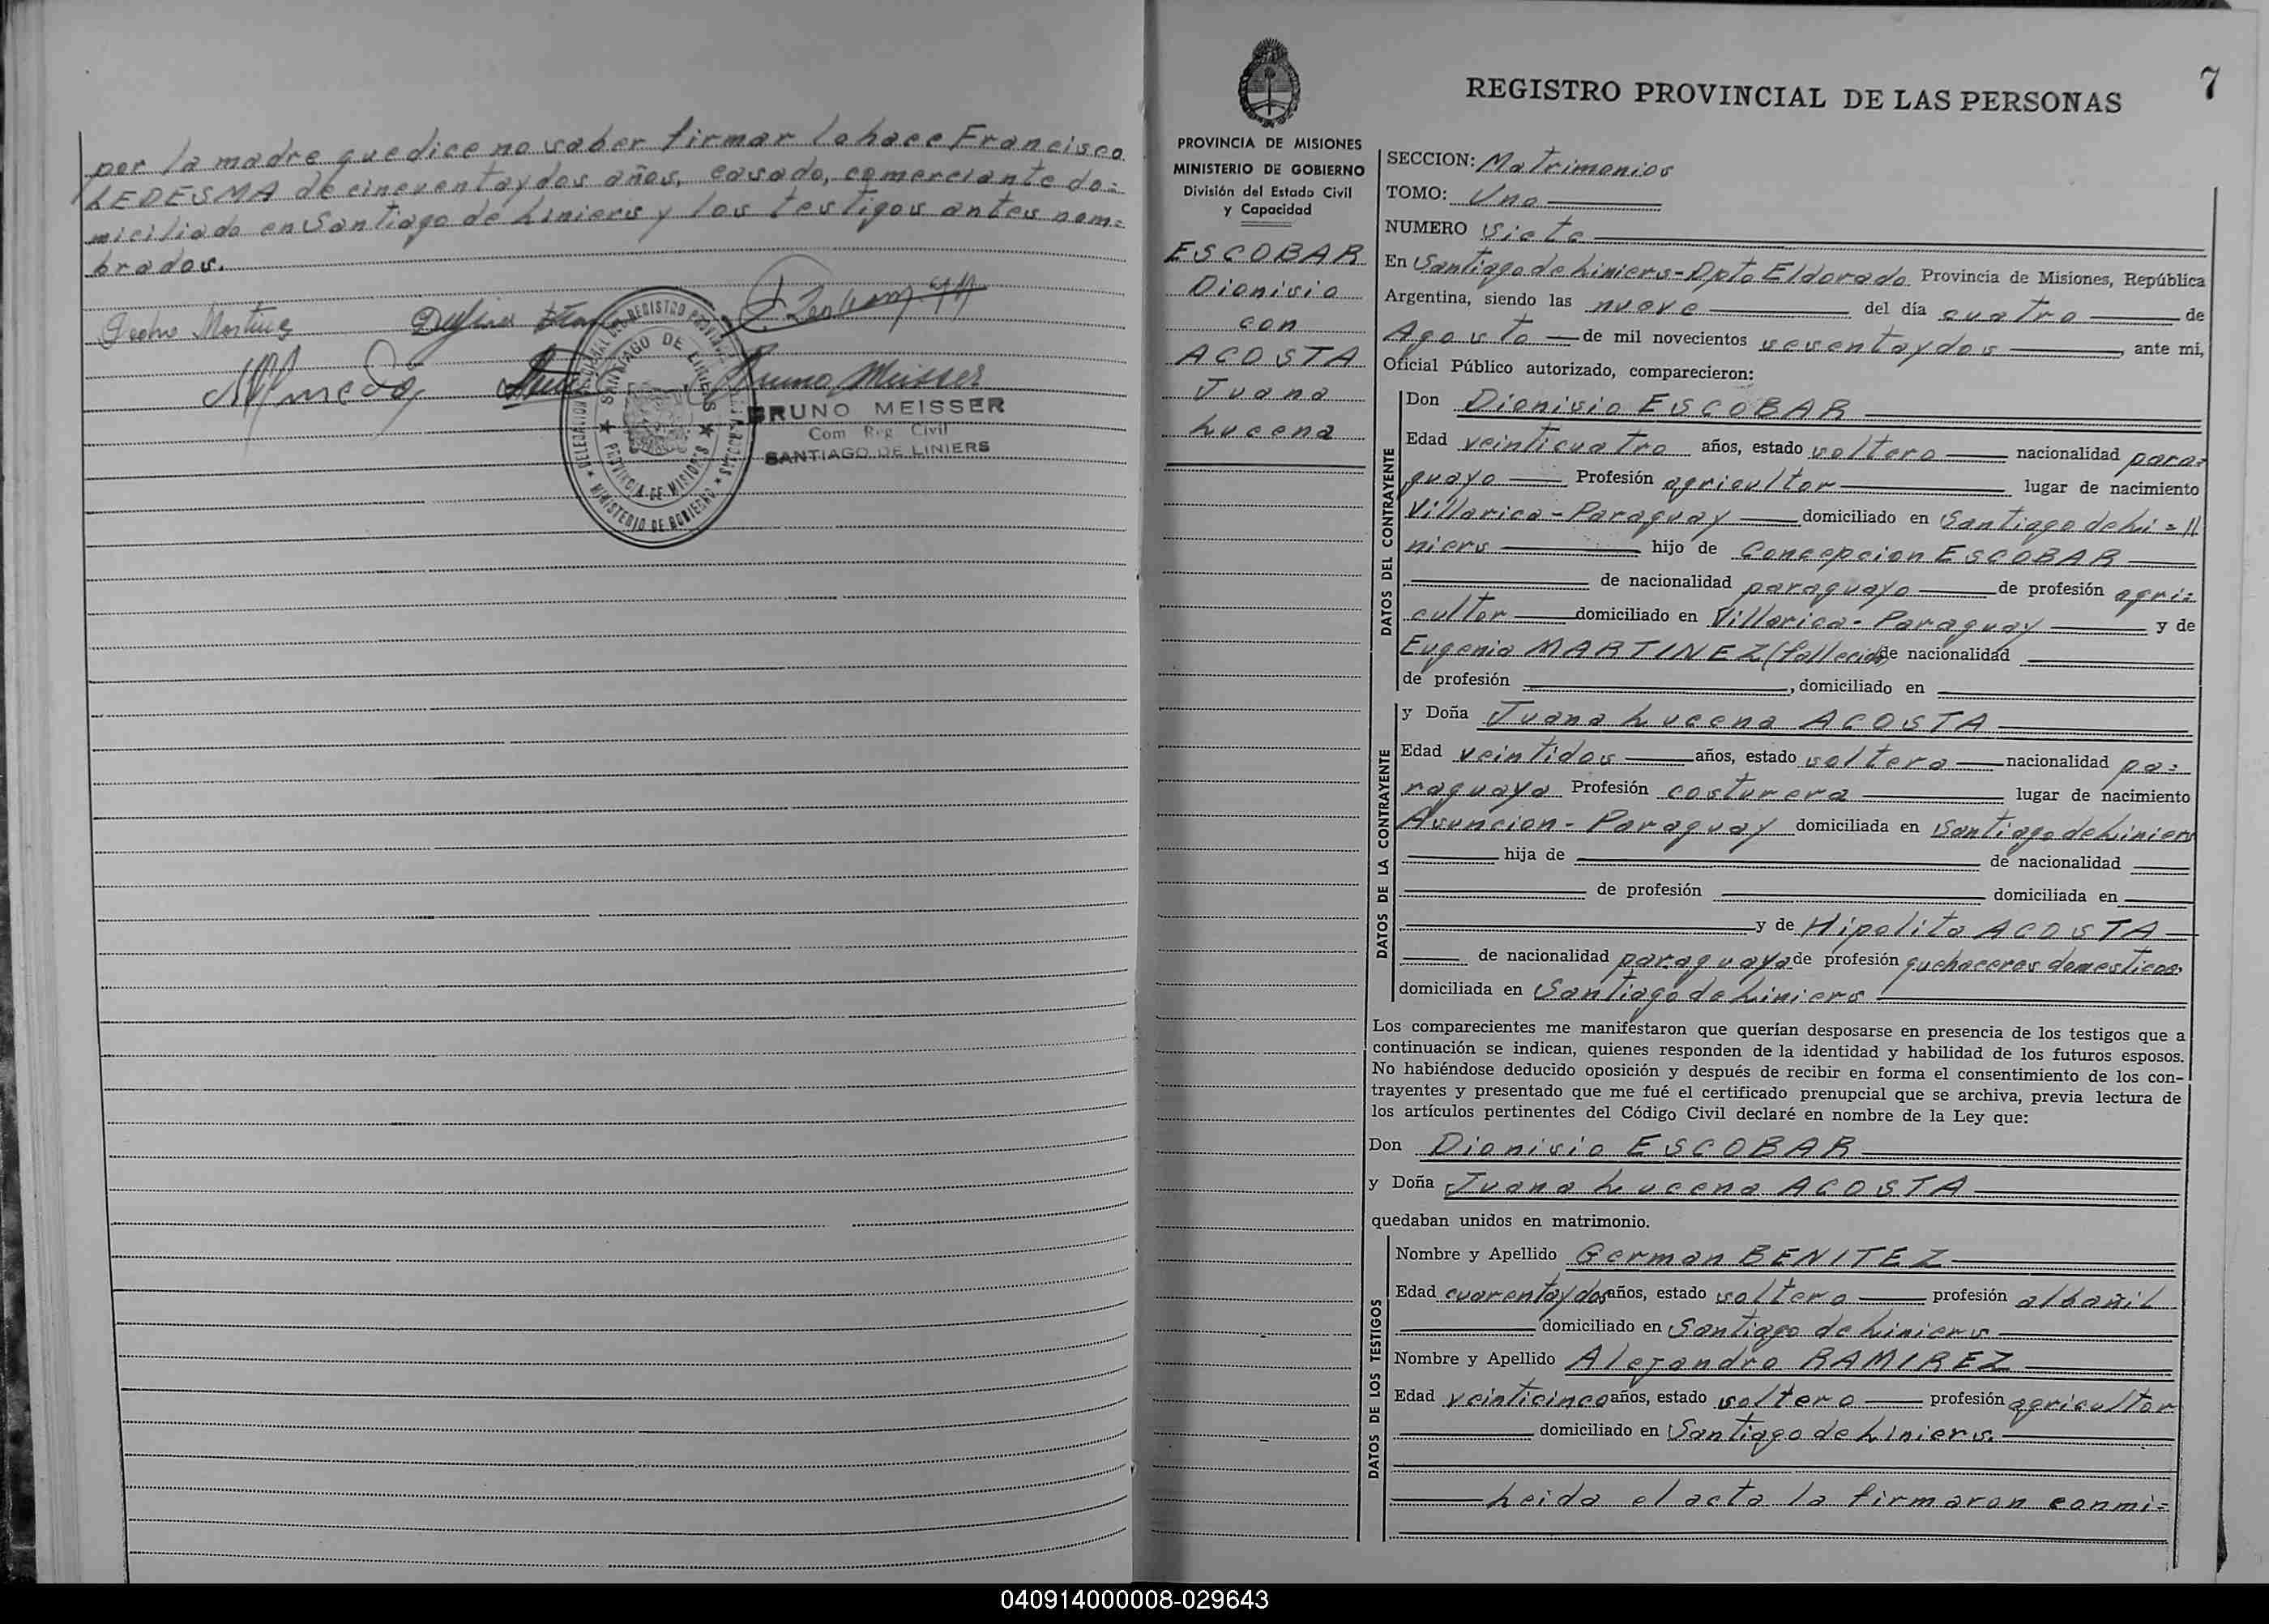 por la madre que dice no saber firmar lo hace Francisco
LEDESMA de cincuentaydos años, casado, comerciante do=
miciliado en Santiago de Liniers y los testigos antes nom=
brados.
Bruno Meisser
BRUNO MEISSER
Com Reg Civil
SANTIAGO DE LINIERS
SANTIAGO DE LINIERS
PROVINCIA DE MISIONES
MINISTERIO DE GOBIERNO
7
REGISTRO PROVINCIAL DE LAS PERSONAS
PROVINCIA DE MISIONES
MINISTERIO DE GOBIERNO
División del Estado Civil
y Capacidad
ESCOBAR
Dionisio
con
ACOSTA
Juana
Lucena
SECCION: Matrimonios
TOMO: Uno
NUMERO Siete
En Santiago de Liniers-Dpto Eldorado Provincia de Misiones, República
Argentina, siendo las nueve del día cuatro de
Agosto de mil novecientos sesentaydos, ante mi,
Oficial Público autorizado, comparecieron:
DATOS DEL CONTRAYENTE
Don Dionisio ESCOBAR
Edad veinticuatro años, estado soltero nacionalidad para=
guayo Profesión agricultor lugar de nacimiento
Villarica-Paraguay domiciliado en Santiago de Li=
niers hijo de Concepcion ESCOBAR
de nacionalidad paraguayo de profesión agri=
cultor domiciliado en Villarica-Paraguay y de
Eugenia MARTINEZ (fallecida) de nacionalidad
de profesión , domiciliado en
DATOS DE LA CONTRAYENTE
y Doña Juana Lucena ACOSTA
Edad veintidos años, estado soltera nacionalidad pa=
raguaya Profesión costurera lugar de nacimiento
Asuncion-Paraguay domiciliada en Santiago de Liniers
hija de de nacionalidad
de profesión domiciliada en
y de Hipolita ACOSTA
de nacionalidad paraguaya de profesión quehaceres domesticos
domiciliada en Santiago de Liniers
Los comparecientes me manifestaron que querían desposarse en presencia de los testigos que a
continuación se indican, quienes responden de la identidad y habilidad de los futuros esposos.
No habiéndose deducido oposición y después de recibir en forma el consentimiento de los con-
trayentes y presentado que me fué el certificado prenupcial que se archiva, previa lectura de
los artículos pertinentes del Código Civil declaré en nombre de la Ley que:
Don Dionisio ESCOBAR
y Doña Juana Lucena ACOSTA
quedaban unidos en matrimonio.
DATOS DE LOS TESTIGOS
Nombre y Apellido German BENITEZ
Edad cuarentaydos años, estado soltero profesión albañil
domiciliado en Santiago de Liniers
Nombre y Apellido Alejandro RAMIREZ
Edad veinticinco años, estado soltero profesión agricultor
domiciliado en Santiago de Liniers.
Leida el acta la firmaron conmi=
040914000008-029643